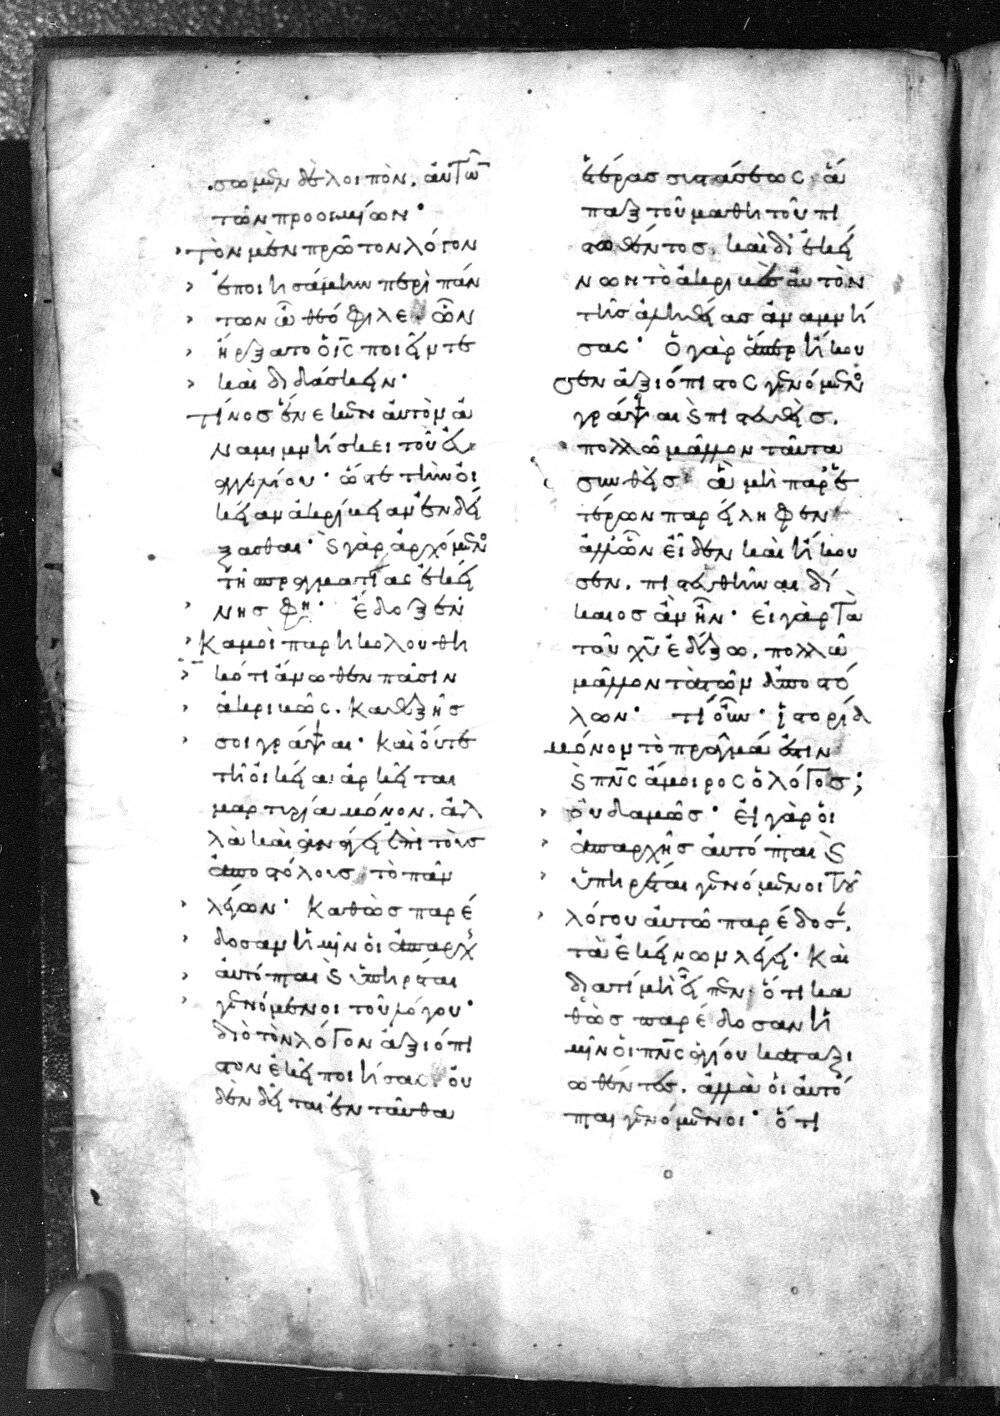 σωμεν δὲ λοιπὸν. ἀυτῶ
τῶν προοιμίων·
Τὸν μὲν πρῶτον λόγον
ἐποιησάμην περὶ πάν
των ὦ θεόφιλε. ὧν
ἤρξατο ὁ ις ποιεῖν τε
καὶ διδάσκειν·
Τίνος ἕνεκεν ἀυτὸν ἀ
ναμιμνήσκει τοῦ ἐυ
αγγελίου· ὥστε τὴν ὀι
κείαν ἀκρίβειαν ἐνδεί
ξασθαι· καὶ γὰρ ἀρχόμενος
τῆς πραγματείας ἐκεί
νης φη· ἔδοξεν
Καμοὶ παρηκολουθη
κότι ἄνωθεν πᾶσιν
ἀκριβῶς. καθεξῆς
σοι γράψαι· καὶ ὀυτε
τῆ ὀικεία ἀρκεῖται
μαρτυρία μόνον. ἀλ
λὰ καὶ ἀνάγει ἐπὶ τοὺς
ἀποστόλους τὸ πᾶν
λέγων· Καθὼς παρέ
δοσαν ἡμῖν ὁι ἀπαρχῆς
ἀυτόπται καὶ ὑπηρέται
γενόμενοι τοῦ λόγου·
διὸ τὸν λόγον ἀξιόπι
στον ἐκεῖ ποιήσας. ὀυ
δὲν δεῖται ἐνταῦθα
ἑτέρας συστάσεως. ἅ
παξ τοῦ μαθητοῦ πι
στωθέντος. καὶ δι ἐκεί
νων τὸ ἀκριβὲς ἀυτὸν
τῆς ἀληθείας ἀναμνή
σας· Ὁ γὰρ ἅπερ ἤκου
σεν ἀξιόπιστος γενόμενος
γράψαι καὶ πιστευθεὶς.
πολλῶ μᾶλλον ταῦτα
συνθεὶς ἃ μὴ παρ ἑ
τέρων παρείληφεν
ἀλλ ὧν εἶδεν καὶ ἤκου
σεν. πιστευθῆναι δί
καιος ἂν ἦν· ει γὰρ τὰ
τοῦ χυ ἐδέξω. πολλῶ
μᾶλλον τὰ τῶν ἀποστό
λων· τί οὖν· ἱστορία
μόνον τὸ πρᾶγμά ἐστιν
καὶ πνς ἄμοιρος ὁ λόγος;
ὀυδαμῶς· ἐι γὰρ ὁι
ἀπαρχῆς ἀυτόπται καὶ
ὑπηρέται γενόμενοι τοῦ
λόγου ἀυτῶ παρέδοσαν.
τὰ ἐκείνων λέγει· Καὶ
διατί μὴ εἶπεν. ὅτι κα
θὼς παρέδοσαν ἡ
μῖν ὁι πνς ἁγίου καταξι
ωθέντες. ἀλλὰ ὁι ἀυτό
πται γενόμενοι· ὅτι